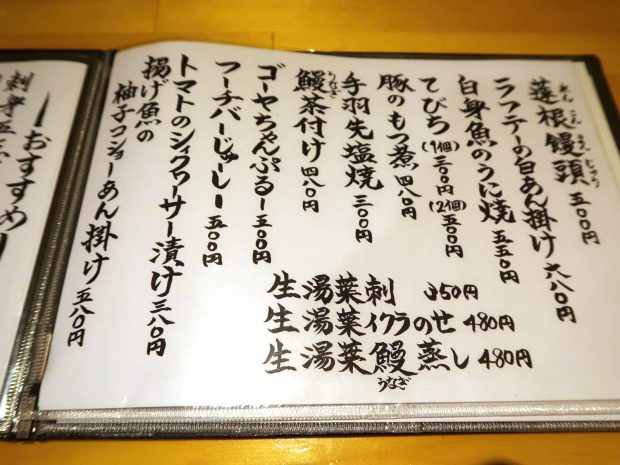 蓮根饅頭 五〇〇円
れんこんまんじゅう
ラフテーの白あん掛け 六八〇円
白身魚のうに焼 五五〇円
てびち(1個)三〇〇円(2個)五〇〇円
豚のもつ煮 四八〇円
手羽先塩焼 三〇〇円
鰻茶付け 四八〇円
うなぎ
ゴーヤちゃんぷるー 五〇〇円
フーチバーじゅーしー 五〇〇円
トマトのシィクヮーサー漬け 三八〇円
揚げ魚の
柚子コショーあん掛け 五八〇円
生湯葉刺 350円
生湯葉イクラのせ 480円
生湯葉鰻蒸し 480円
うなぎ
おすすめ
刺身五